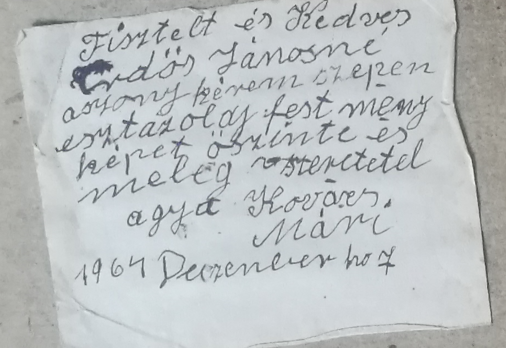 Tisztelt és Kedves
Erdős Jánosné
aszony kérem szepen
esztazolaj fest mény
képet öszinte és
meleg szeretetel
agya Kovács
Mári
1964 Deczember ho 7